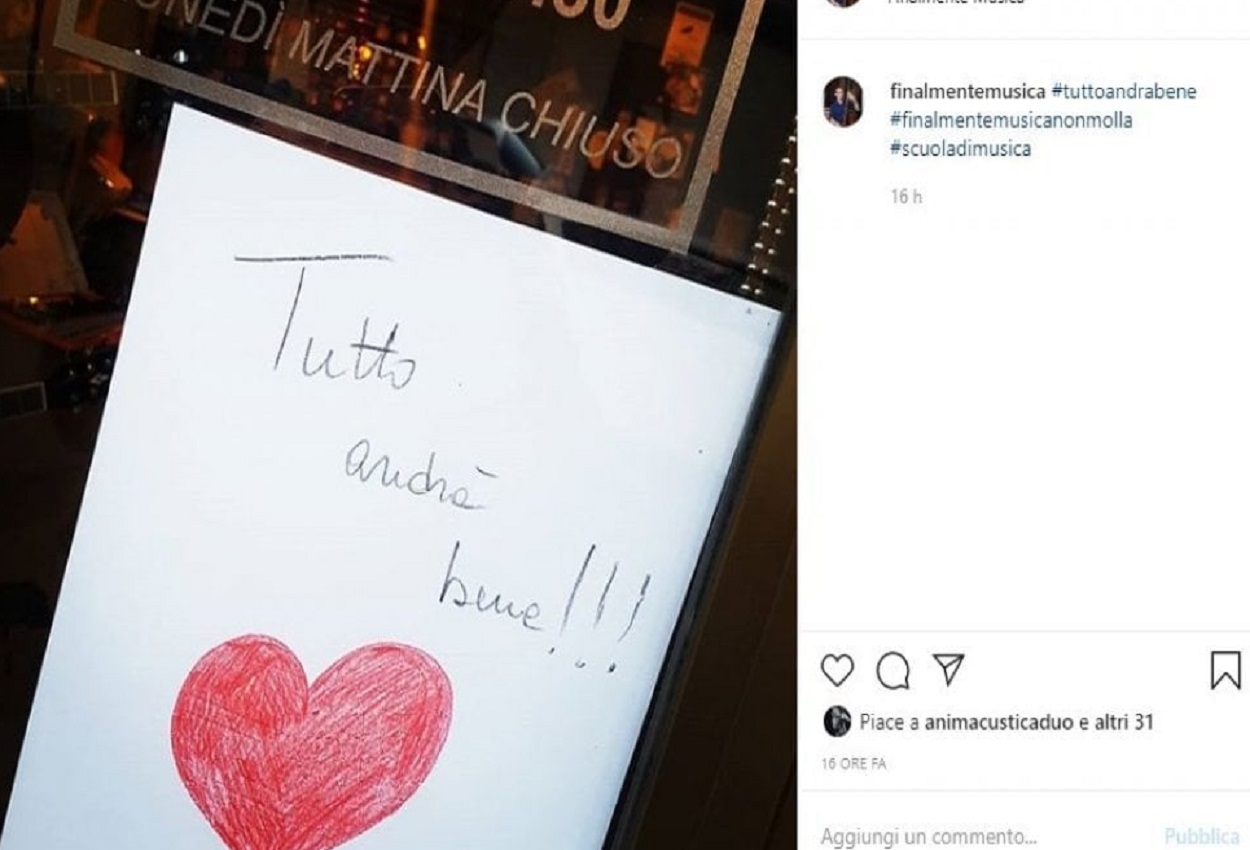 .30
LUNEDÌ MATTINA CHIUSO
Tutto
andrà
bene!!!
Finalmente Musica
finalmentemusica #tuttoandrabene
#finalmentemusicanonmolla
#scuoladimusica
16 h
Piace a animacusticaduo e altri 31
16 ORE FA
Aggiungi un commento...
Pubblica